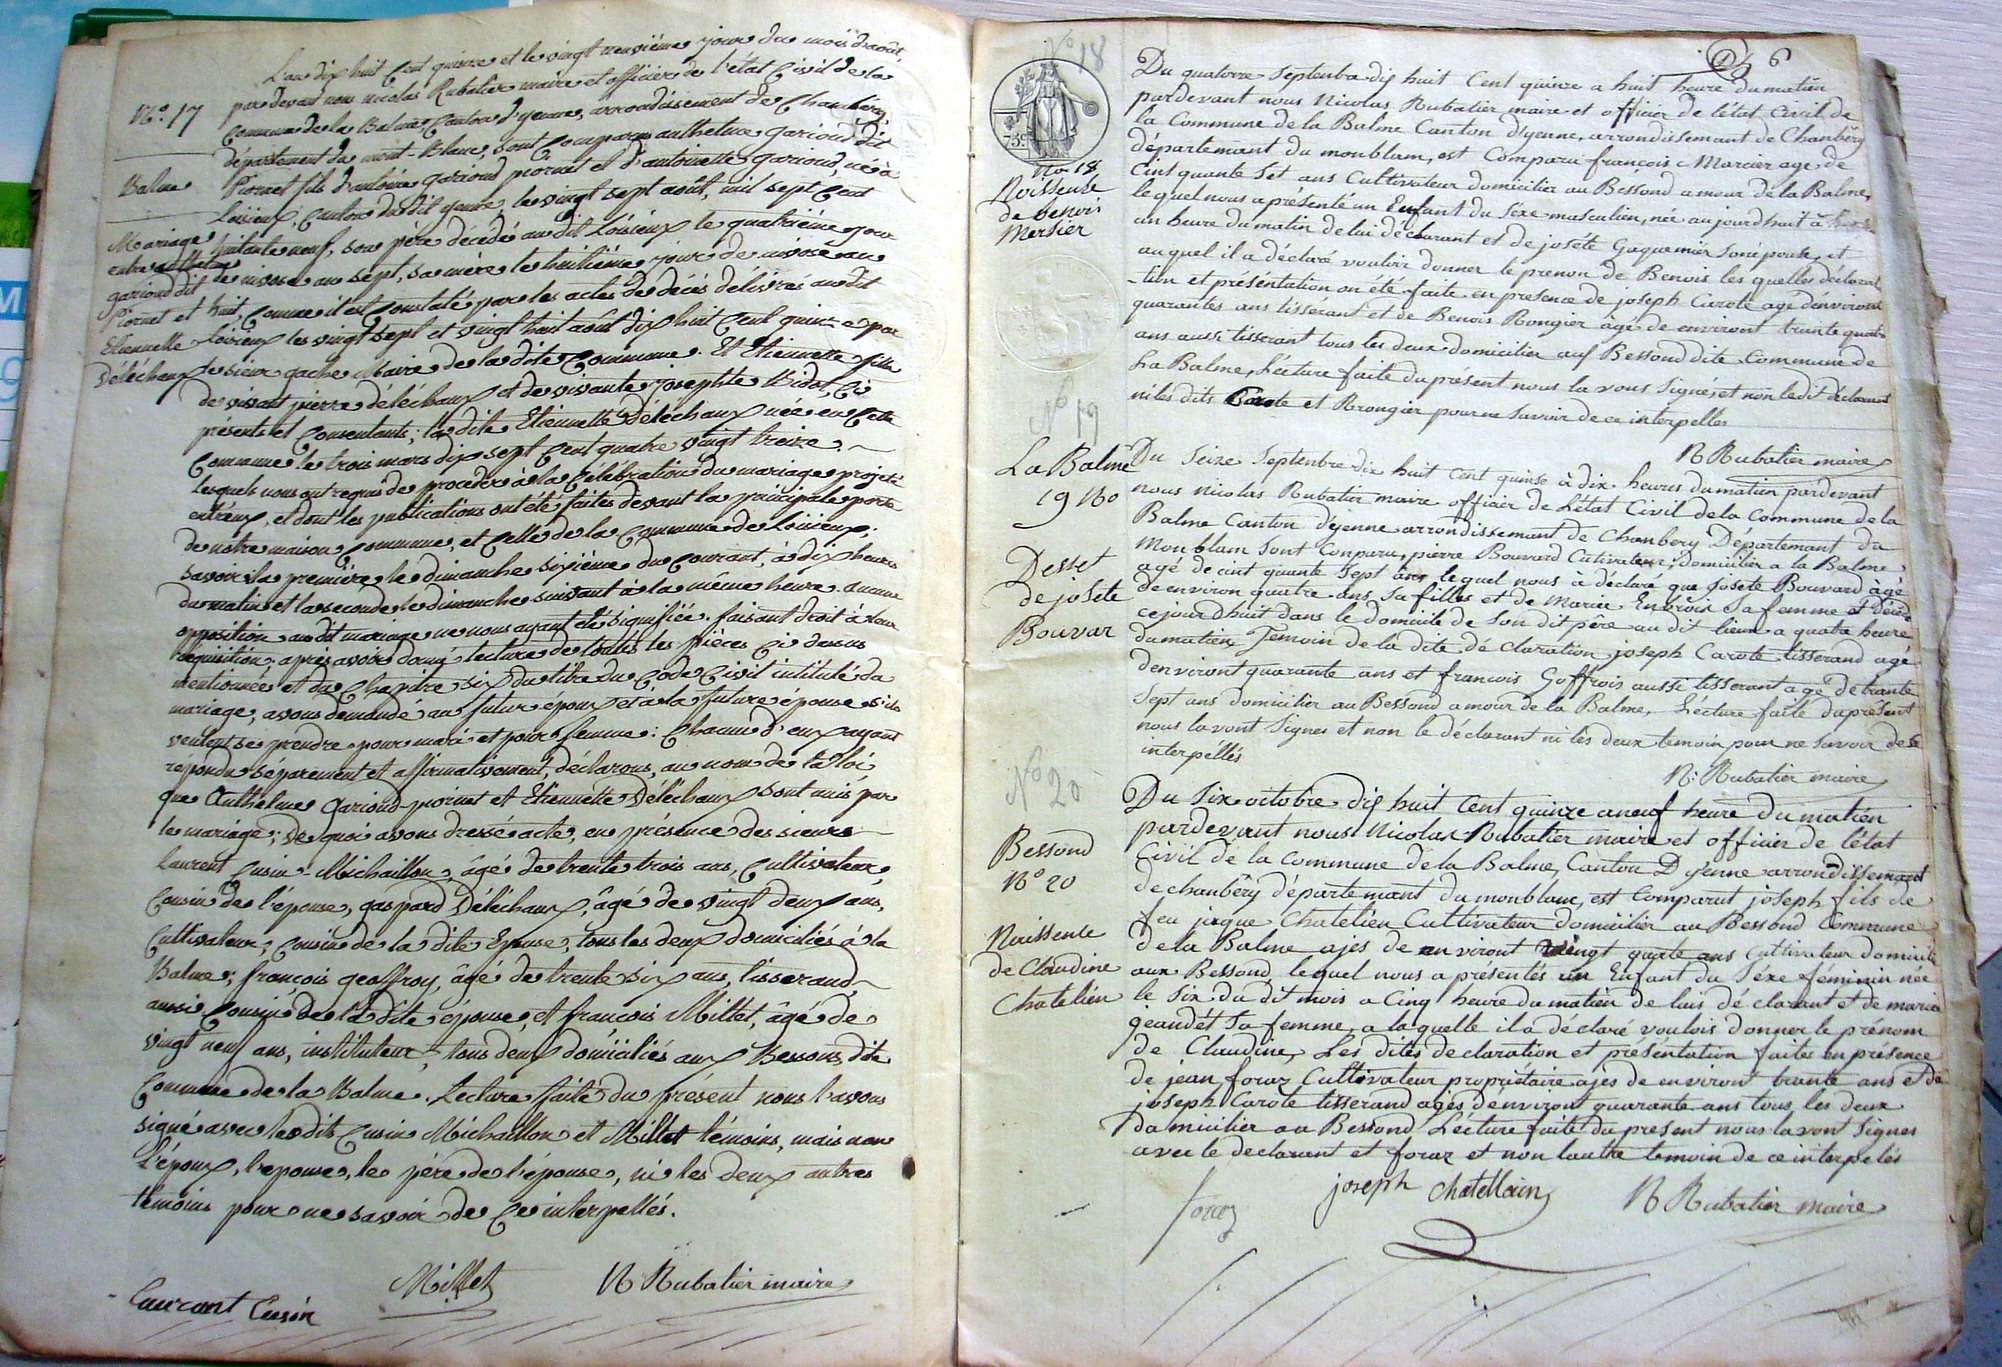 L'an dix huit Cent quinze et le vingt neuvième jour du mois d'août,
par devant nous nicolas Rubatier maire et officier de l'état Civil de la
Commune de la Balme Canton d'yenne, arrondissement de Chambéry
département du mont-Blanc, sont Comparus anthelme garioud dit
Piornet fils d'antoine garioud piornet et d'antoinette gariond, né à
Loisieux Canton du dit yenne le vingt sept août, mil sept Cent
huitante neuf, son père décédé au dit Loisieux le quatrième jour
de nivose an sept, sa mère le huitième jour de nivose an
huit, Comme il est Constaté par les actes de décès délivrés au dit
Loisieux les vingt sept et vingt huit août dix huit Cent quinze par
le sieur gache Maire de la dite Commune. Et Etiennette fille
de vivant pierre déléchaux et de vivante josephte Bidot, Ci
presents et Consentants; la dite Etiennette Déléchaux née en Cette
Commune le trois mars dix sept Cent quatre vingt treize.
Lesquels nous ont requis de procéder à la Célébration du mariage projeté
entr'eux, et dont les publications ont été faites devant la principale porte
de notre maison Commune, et Celle de la Commune de Loisieux;
savoir: la première le dimanche sixième du Courant, à dix heures
du matin et la seconde le dimanche suivant à la même heure. aucune
opposition au dit mariage ne nous ayant été signifiée. faisant droit à leur
réquisition; après avoir donné lecture de toutes les pièces Ci dessus
mentionnées et du Chapitre six du titre du Code Civil intitulé du
mariage, avons demandé au futur époux et à la future épouse s'ils
veulent se prendre pour mari et pour femme: Chacun d'eux ayant
repondu séparement et affirmativement, déclarons, au nom de la loi
que Anthelme Gariond-piornet et Etiennette Déléchaux sont unis par
le mariage; De quoi avons dressé acte, en présence des sieurs
Laurent Cusin-Michaillon, âgé de trente trois ans, Cultivateur,
Cousin de l'épouse, gaspard Déléchaux, âgé de vingt deux ans,
Cultivateur, Cousin de la dite Epouse, tous les deux domiciliés à la
Balme; françois geoffroy, âgé de trente six ans, tisserand,
aussi Cousin de la dite épouse, et françois Millet, âgé de
vingt neuf ans, instituteur, tous deux domiciliés aux Bessons, dite
Commune de la Balme. Lecture faite du présent nous l'avons
signé avec les dits Cusin Michaillon et Millet témoins, mais non
l'époux, l'epouse, le père de l'épouse, ni les deux autres
témoins pour ne savoir de Ce interpellés.
Laurant Cusin Millet N Rubatier maire
N.° 17
Balme
Mariage
entre anthelme
gariond dit
Piornet et
Etiennette
Déléchaux
6
Du quatorze Septenbre dix huit Cent quinze a huit heure du matien
pardevant nous Nicolas Rubatier maire et officier de létat Civil de
la Commune de la Balme Canton dyenne, arrondissemant de Chanbéry
département du monblam, est Comparu françois Mercier age de
Cinquante Set ans Cultivateur domicilier au Bessond amour de la Balme,
lequel nous a présenté un Enfant du Séxe masculien, née aujourdhuit à
un heure du matin de lui déclarant et de joséte Gaquemier Son épouse, et
auquel il a déclaré vouloir donner le prenon de Benois les quelles déclara
-tion et présentation on été faite en presence de joseph Carote age denviront
quarantes ans tissérant et de Benois Rongier âgé de environt trante quatre
ans aussi tisserant tous les deux domicilier auf Bessond dite Commune de
La Balme, Lécture faite du présent nous la vons Signés et non ledit déclarant
ni lés dits Carote et Rrongier pour ne Savoir de ce interpelles
N Rubatier maire
N° 18
75c
No 18
Noissense
de benois
Mersier
N° 19
La Balme
19 No
Desset
de joséte
Bouvar
Du Seize Septenbre dix huit Cent quinse à dix heures du matien pardevant
nous Nicolas Rubatier maire officier de létat Civil de la Commune de la
Balme Canton dyenne arrondissemant de Chanbery Departemant du
Monblam Sont Conparu, pierre Bouvard Cutivateur, domicilier a la Balme
agé de cint quante Sept ans lequel nous à déclaré que Joséte Bouvard àgé
de environ quatre ans, Sa filles et de Marie Sa femme et décédé
cejourdhuit dans le domicile de Son dit père au dit lieux a quatre heure
du matien, Temoin de la dite de claration joseph Carote tisserand agé
denviront quarante ans et francois Goffrois aussi tisserant agé de trante
Sept ans domicilier au Bessond amour de la Balme, Lecture faite du présent
nous lavont Signes et non le déclarant ni lés deux temoin pour ne Savoir de ce
interpellés
N. Rubatier maire
N° 20
Bessond
N° 20
Naissense
de Claudine
Chatelién
Du Six octobre dix huit Cent quinze aneuf heure du matien
pardevant nous Nicolas Rubatier maire et officier de létat
Civil de la Commune de la Balme, Canton D'yenne arrondissemant
de chanbéry départemant du monblanc, est Comparut joseph fils de
feu jaque Chatelien Cultivateur domicilier au Bessond Commune
de la Balme ajes de environt vingt quate ans Cultivateur domicile
aux Bessond, lequel nous a présentés un Enfant du Séxe féminin née
le Six du dit mois a Cinq heure du matien de luis de clarant et de marie
geandét Sa femme, a laquelle il a déclaré voulois donner le prénom
de Claudine, Les dites declaration et présentation faites en présence
de jean foraz Cultivateur propriétaire ajes de environt trante ans et de
joseph Carote tisserand agés dénviront quarante ans tous les deux
domicilier au Bessond Lécture faite du present nous la vont Signes
avec le declarant et foraz et non lautre temoin de ce interpelés
foraz joseph chatellain N Rubatier maire